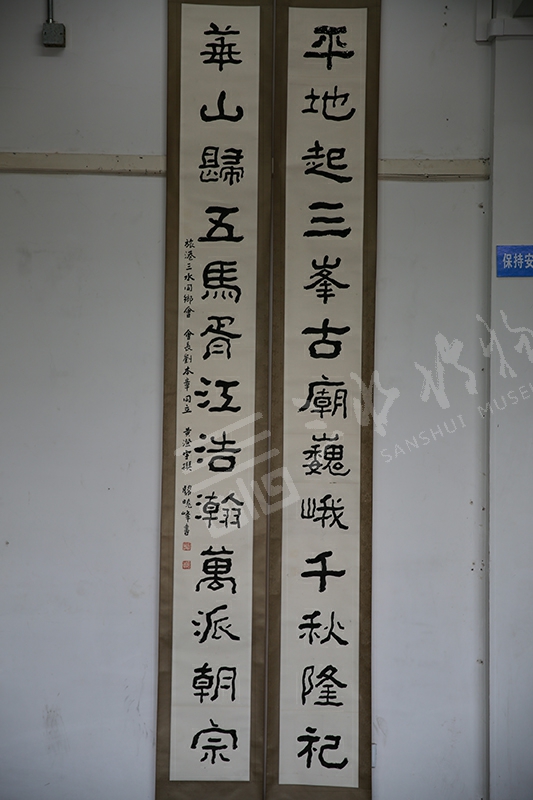 平地起三峯古廟巍峨千秋隆祀
華山歸五馬胥江浩瀚萬派朝宗
旅港三水同鄉會 會長劉本章同立 黃澄宇撰 關曉峰書
保持安
三水博物
SANSHUI MUSE